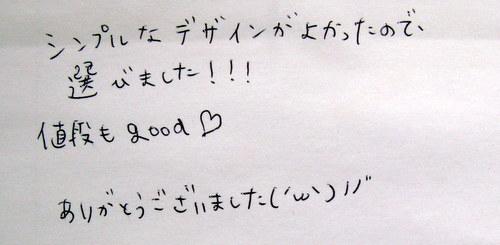 シンプルなデザインがよかったので、
選びました!!!
値段もgood♡
ありがとうございました(´ω`)ﾉｼﾞ